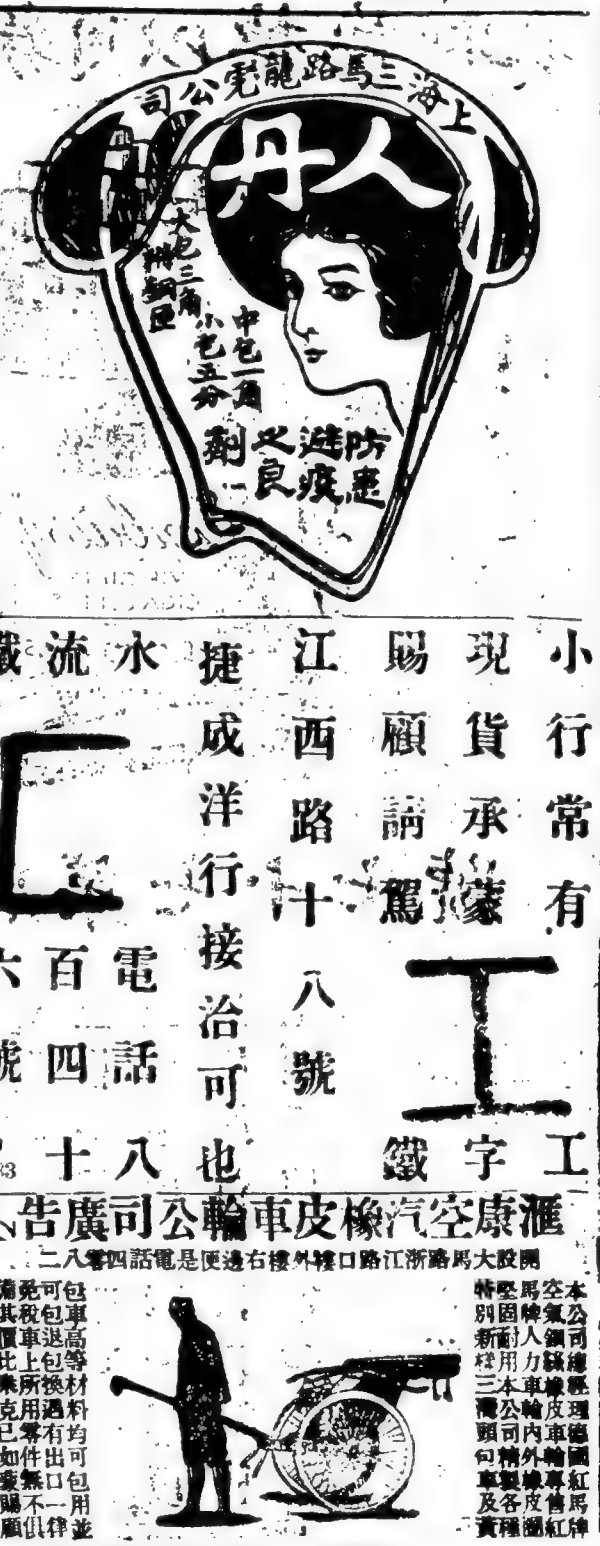 上海三馬路龍虎公司
人丹
大包三角
中包一角
小包五分
防患
避疫
之良
劑
小行常有
現貨承蒙
賜顧請駕
工字鐵
江西路十八號
捷成洋行接洽可也
水流鐵
電話八百四十六號
滙康空汽橡皮車輪公司廣告
開設大馬路浙江路口樓外樓右邊便是電話四零八二
本公司總經理德國紅馬牌
空氣鋼絲橡皮車輪專售紅
馬牌人力車輪內外橡皮圈
堅固耐用本公司精製各種
特別新樣三灣頭包車及黃
包車高等材料均可包用並
可包退包換遇有出口一律
免稅車上所用零件無不俱
備其價比衆克已如蒙賜顧